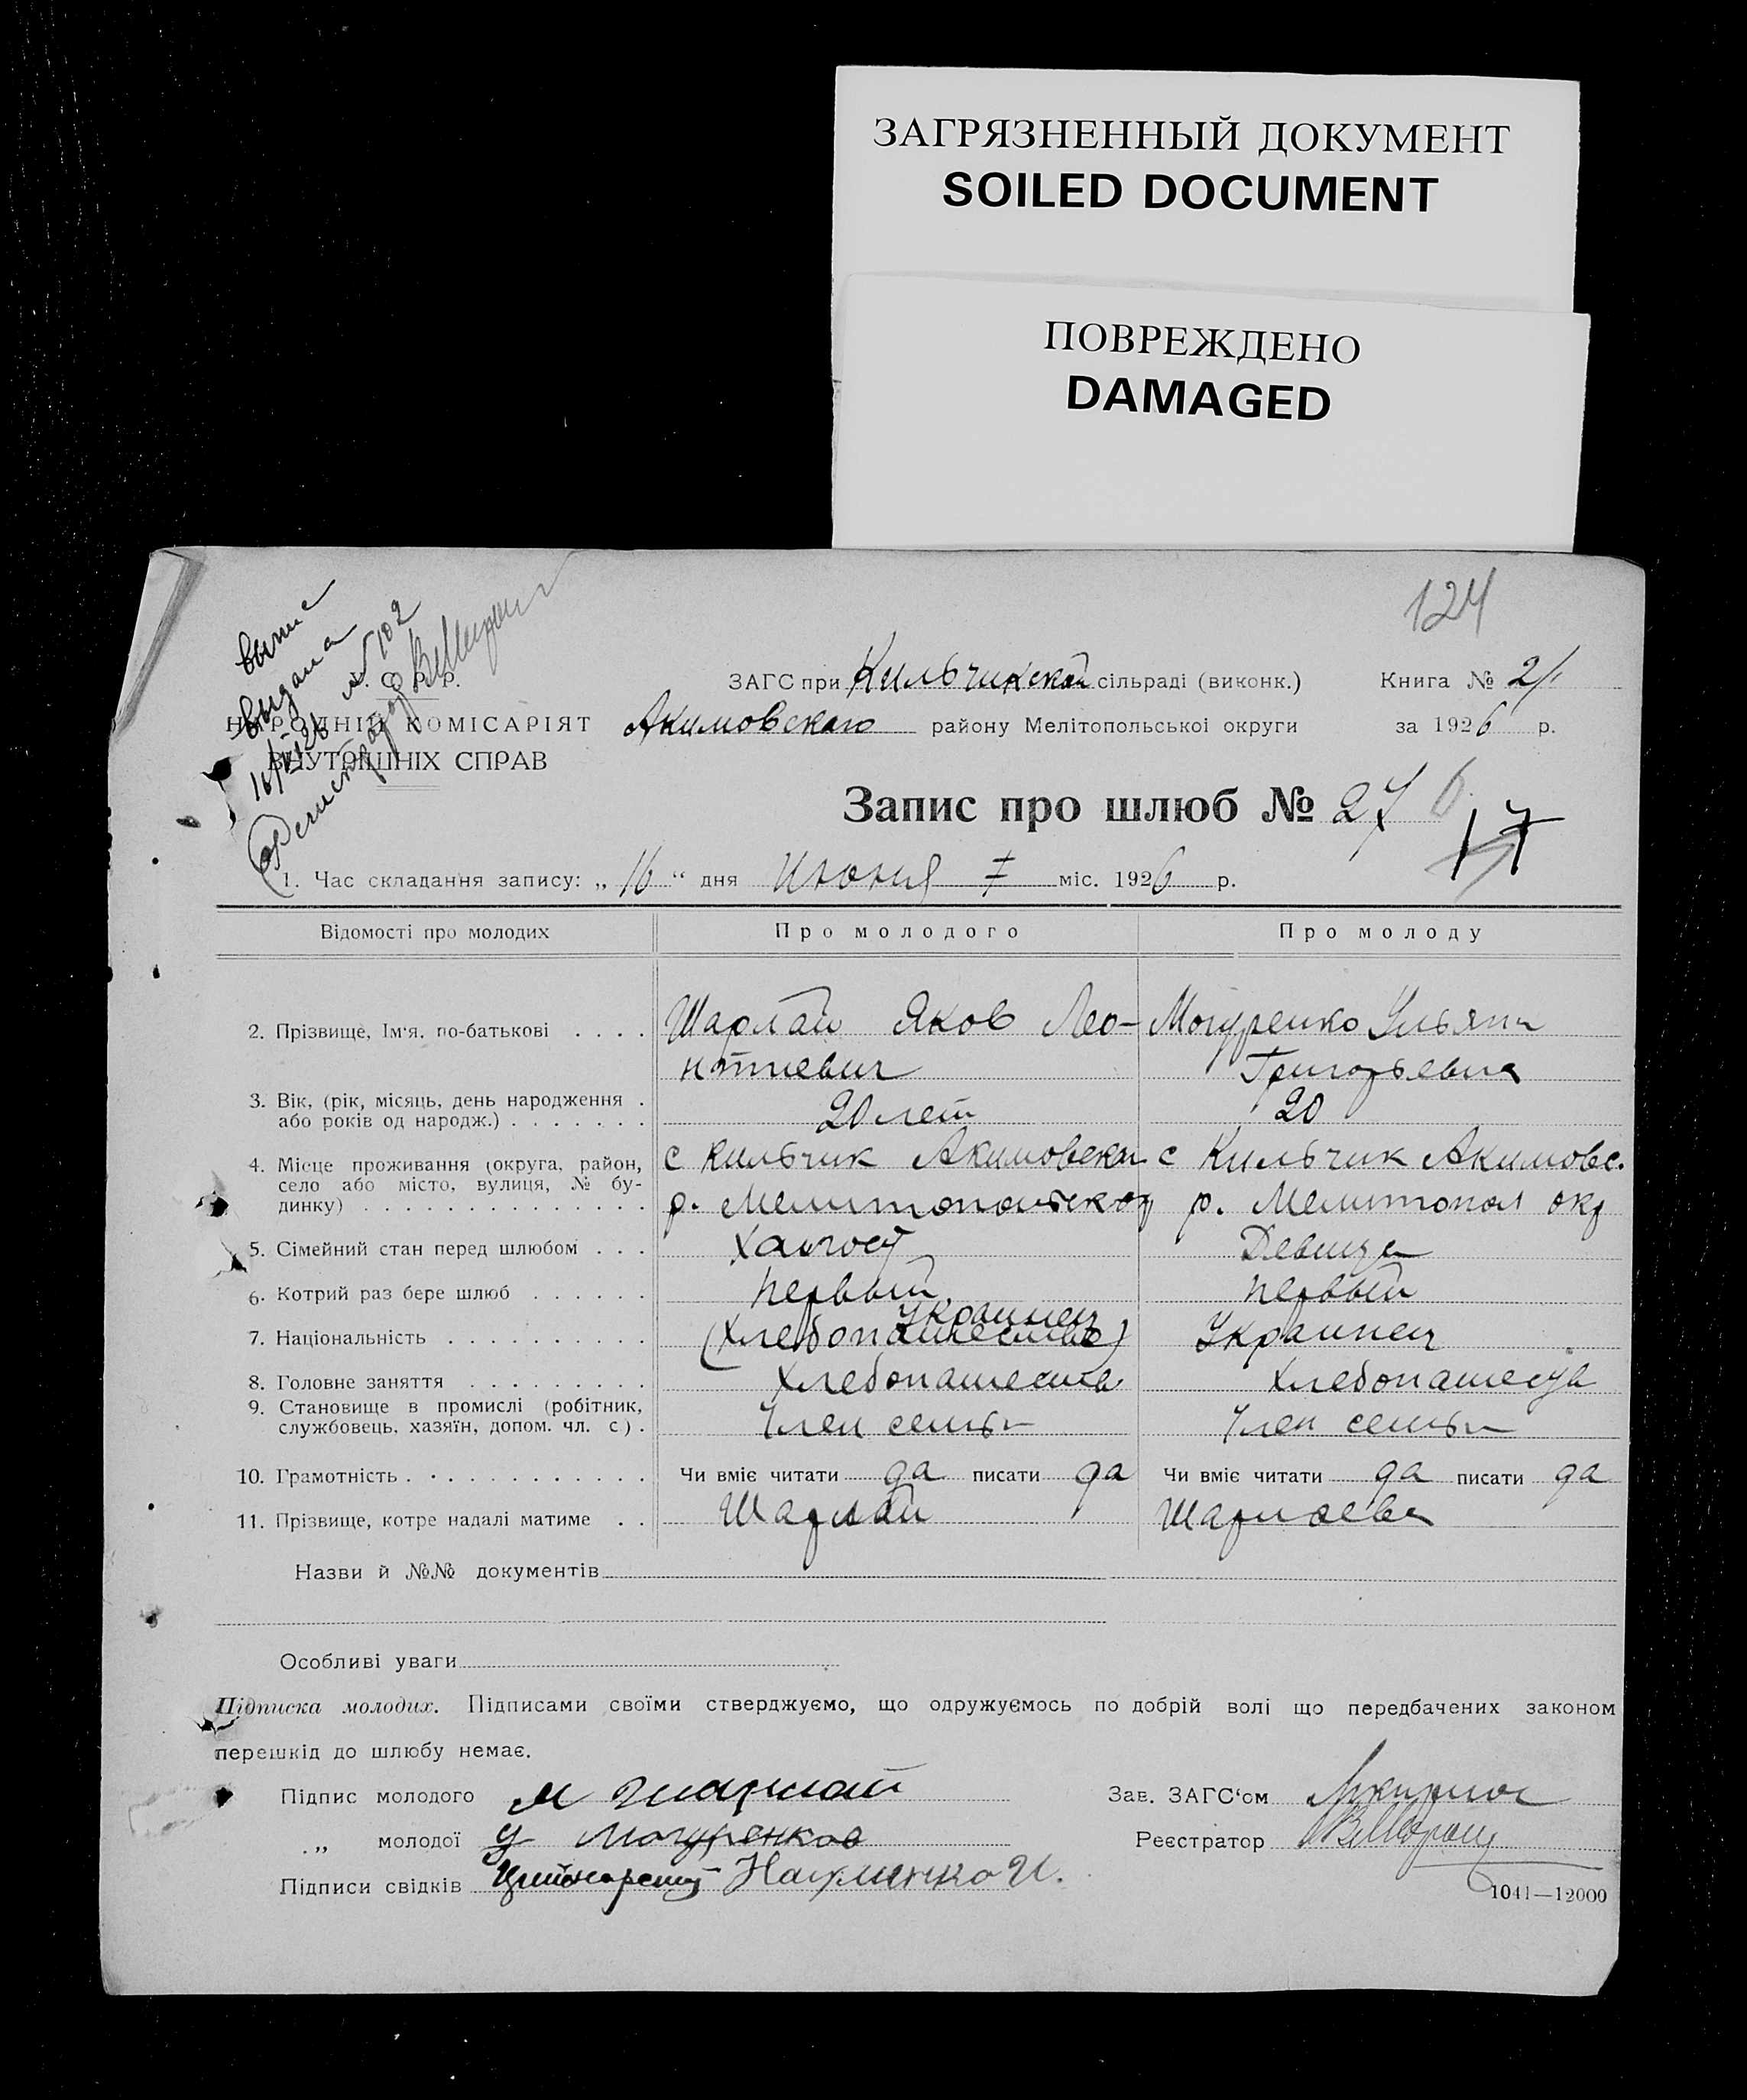 ЗАГРЯЗНЕННЫЙ ДОКУМЕНТ
SOILED DOCUMENT
ПОВРЕЖДЕНО
DAMAGED
124
выпис
выдана
16/VI 26 № 102
Регистратор
У. С. Р. Р.
НАРОДНІЙ КОМІСАРІЯТ
ВНУТРІШНІХ СПРАВ
ЗАГС при Кильчикской сільраді (виконк.) Книга № 2/1
Акимовского району Мелітопольської округи за 1926 р.
Запис про шлюб № 27 6
17
1. Час складання запису: „16“ дня Июня міс. 1926 р.
Відомості про молодих Про молодого Про молоду
2. Прізвище, Ім'я, по-батькові Шарлай Яков Лео- Могуренко Ульяна
нтиевич Григорьевна
3. Вік, (рік, місяць, день народження
або років од народж.) 20 лет 20
4. Місце проживання (округа, район, с Кильчик Акимовски с Кильчик Акимовс.
село або місто, вулиця, № бу-
динку) р. Мелитопольск окр р. Мелитопол окр
5. Сімейний стан перед шлюбом Халост Девица
6. Котрий раз бере шлюб первый первый
Украинец
7. Національність (Хлебопашество) Украинец
8. Головне заняття Хлебопашества Хлебопашества
9. Становище в промислі (робітник,
службовець, хазяїн, допом. чл. с.) Член семьи Член семьи
10. Грамотність Чи вміє читати да писати да Чи вміє читати да писати да
11. Прізвище, котре надалі матиме Шарлай Шарлаева
Назви й №№ документів
Особливі уваги
Підписка молодих. Підписами своїми стверджуємо, що одружуємось по добрій волі що передбачених законом
перешкід до шлюбу немає.
Підпис молодого Шарлай Зав. ЗАГС'ом
„ молодої У Могуренкова Реєстратор
Підписи свідків Науменко И.
1041—12000